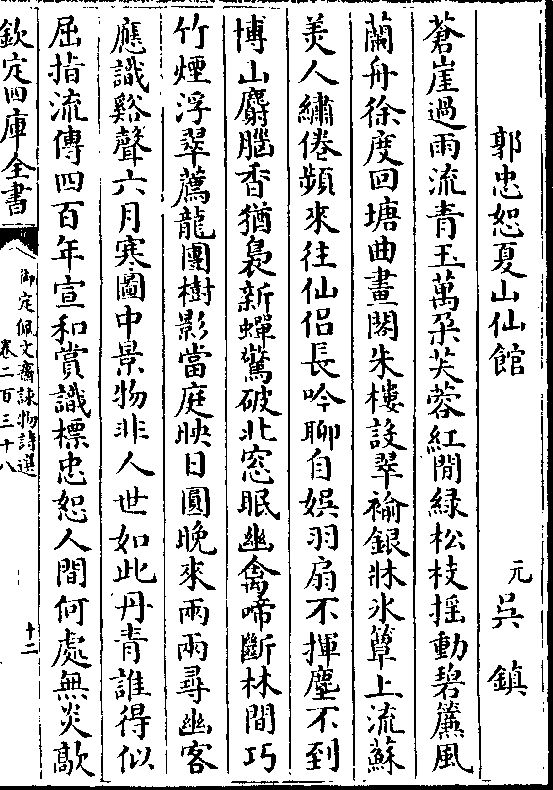 郭忠恕夏山仙館
元吳鎮
蒼崖過雨流青玉萬朶芙蓉紅間綠松枝揺動碧簾風
蘭舟徐度回塘曲畫閣朱樓設翠褕銀牀氷簟上流蘇
美人繡倦頻來往仙侣長吟聊自娱羽扇不揮塵不到
博山麝腦香猶裊新蟬驚破北窓眠幽禽啼斷林間巧
竹煙浮翠薦龍團樹影當庭映日圓晚來兩兩尋幽客
應識谿聲六月寒圖中景物非人世如此丹青誰得似
屈指流傳四百年宣和賞識標忠恕人間何處無炎歊
欽定四庫全書
御定佩文齋詠物詩選
卷二百三十八
十二